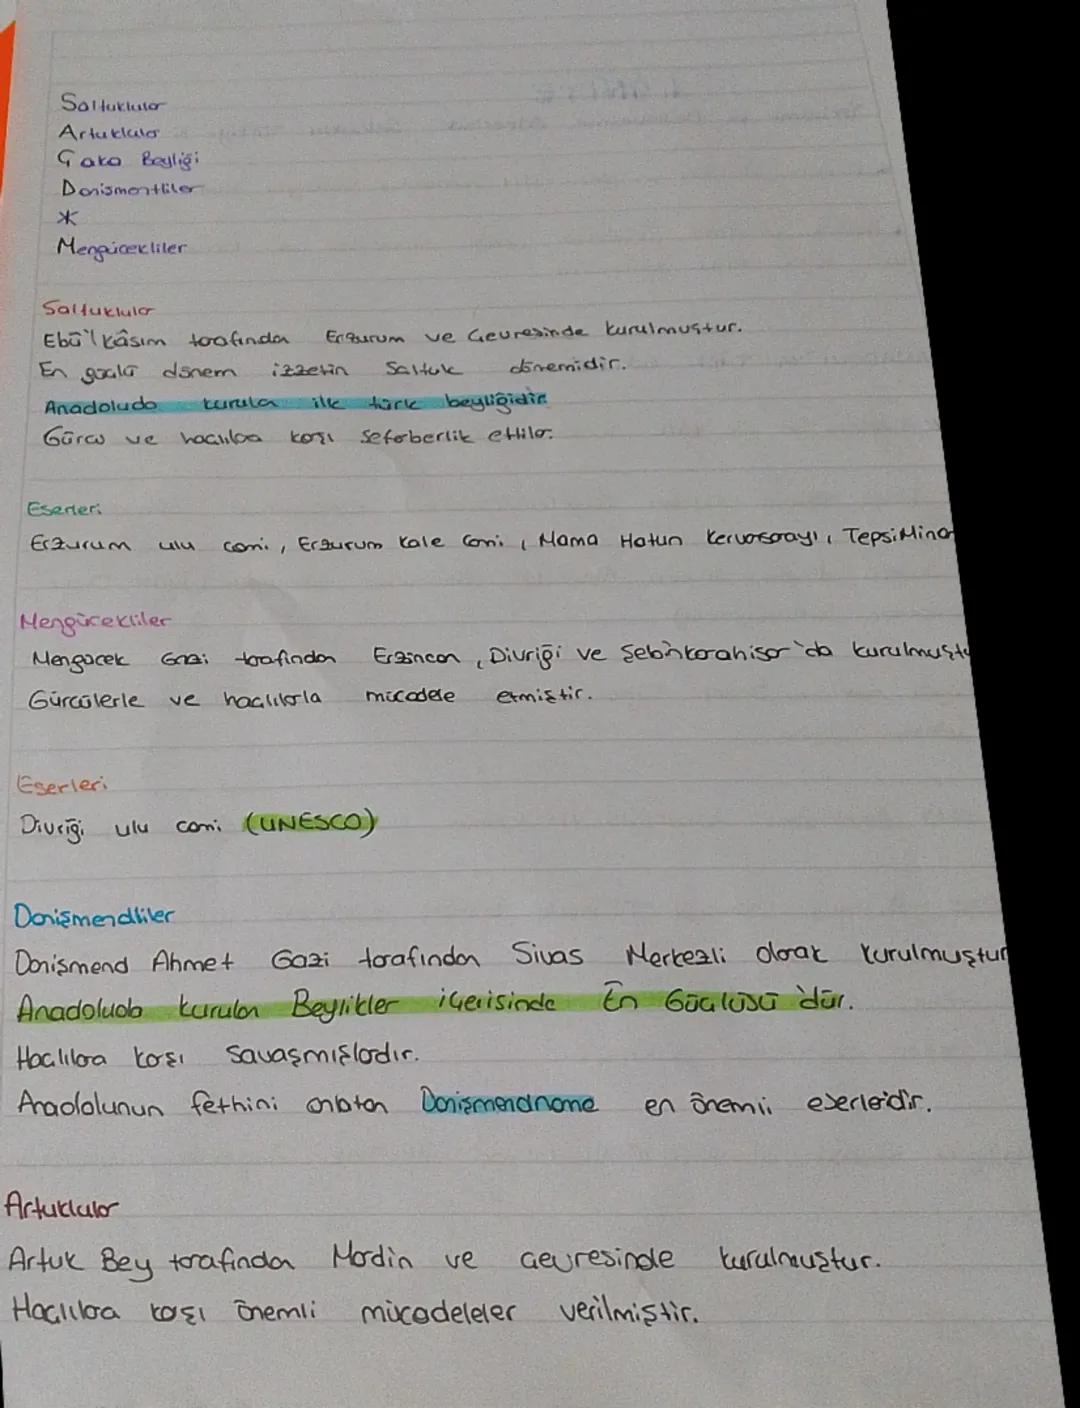 Saltuklular
Artuklular
Çaka Beyliği
Danişmentliler
*
Mengücekliler
Saltuklular
Ebû'l kâsım tarafından Erzurum ve Çevresinde kurulmuştur.
En güçlü dönem izzetin Saltuk dönemidir.
Anadoluda kurulan ilk türk beyliğidir.
Gürcü ve haçlılara karşı Seferberlik ettiler.
Eserleri
Erzurum ulu cami, Erzurum Kale Cami, Mama Hatun Kervansarayı, TepsiMinar
Mengücekliler
Mengücek Gazi tarafından Erzincan, Divriği ve Şebinkarahisar'da kurulmuştu
Gürcülerle ve haçlılarla mücadele etmiştir.
Eserleri
Divriği ulu cami (UNESCO)
Danişmendliler
Danişmend Ahmet Gazi tarafından Sivas Merkezli olarak kurulmuştur
Anadoluda kurulan Beylikler içerisinde En Güçlüsü'dür.
Haçlılara karşı Savaşmışlardır.
Anadolunun fethini anlatan Danişmendname en önemli eserleridir.
Artuklular
Artuk Bey tarafından Mardin ve Çevresinde kurulmuştur.
Haçlılara karşı önemli mücadeleler verilmiştir.